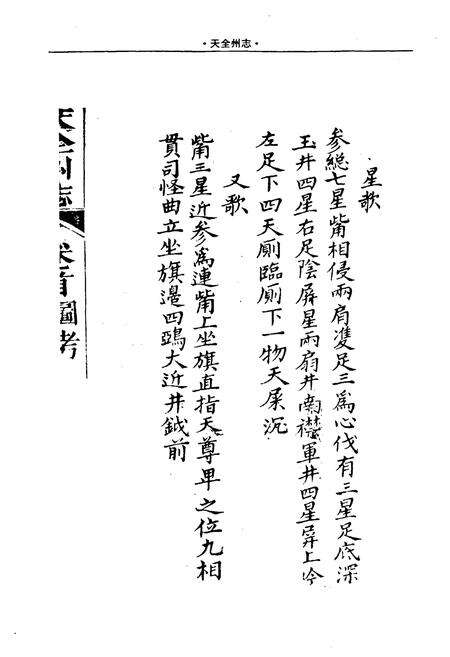 ·天全州志·
星歌
参総七星觜相侵兩肩雙足三爲心伐有三星足底深
玉井四星右足陰屏星兩扇井南襟軍井四星屏上吟
左足下四天厠臨厠下一物天屎沉
又歌
觜三星近参爲連觜上坐旗直指天尊卑之位九相
貫司怪曲立坐旗邊四鴉大近井鉞前
天全州志
卷首圖考